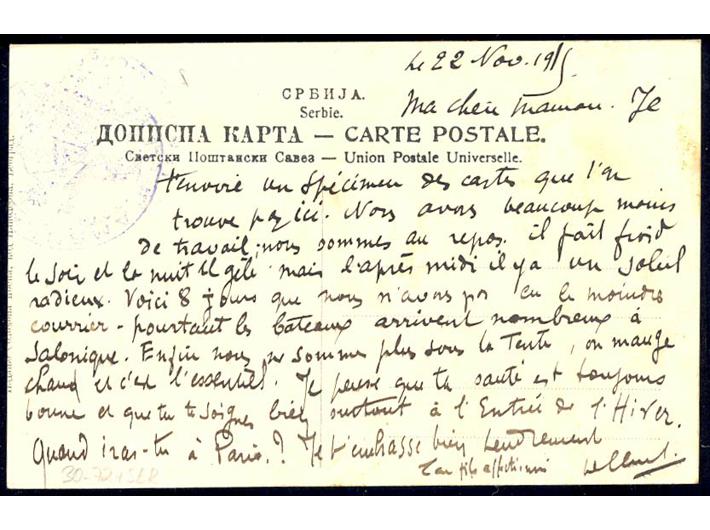 Le 22 Nov. 1915
СРБИЈА.
Serbie.
Ma chère maman. Je
ДОПИСНА КАРТА — CARTE POSTALE.
Светски Поштански Савез — Union Postale Universelle.
t'envoie un spécimen des cartes que l'on
trouve par ici. Nous avons beaucoup moins
de travail, nous sommes au repos. il fait froid
le soir et la nuit il gèle mais l'après midi il y a un soleil
radieux. Voici 8 jours que nous n'avons pas eu le moindre
courrier - pourtant les bateaux arrivent nombreux à
Salonique. Enfin nous ne sommes plus sous la Tente, on mange
chaud et c'est l'essentiel. Je pense que ta santé est toujours
bonne et que tu te soignes bien surtout à l'Entrée de l'Hiver.
Quand iras-tu à Paris.? Je t'embrasse bien tendrement
Ton fils affectionné
30-